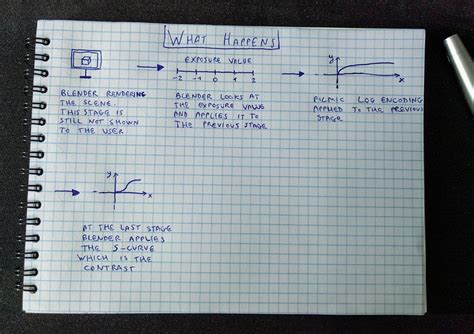 WHAT HAPPENS
BLENDER RENDERING
THE SCENE.
THIS STAGE IS
STILL NOT SHOWN
TO THE USER
EXPOSURE VALUE
-2 -1 0 1 2
BLENDER LOOKS AT
THE EXPOSURE VALUE
AND APPLIES IT TO
THE PREVIOUS STAGE
y
x
FILMIC LOG ENCODING
APPLIED TO THE PREVIOUS
STAGE
y
x
AT THE LAST STAGE
BLENDER APPLIES
THE S-CURVE
WHICH IS THE
CONTRAST